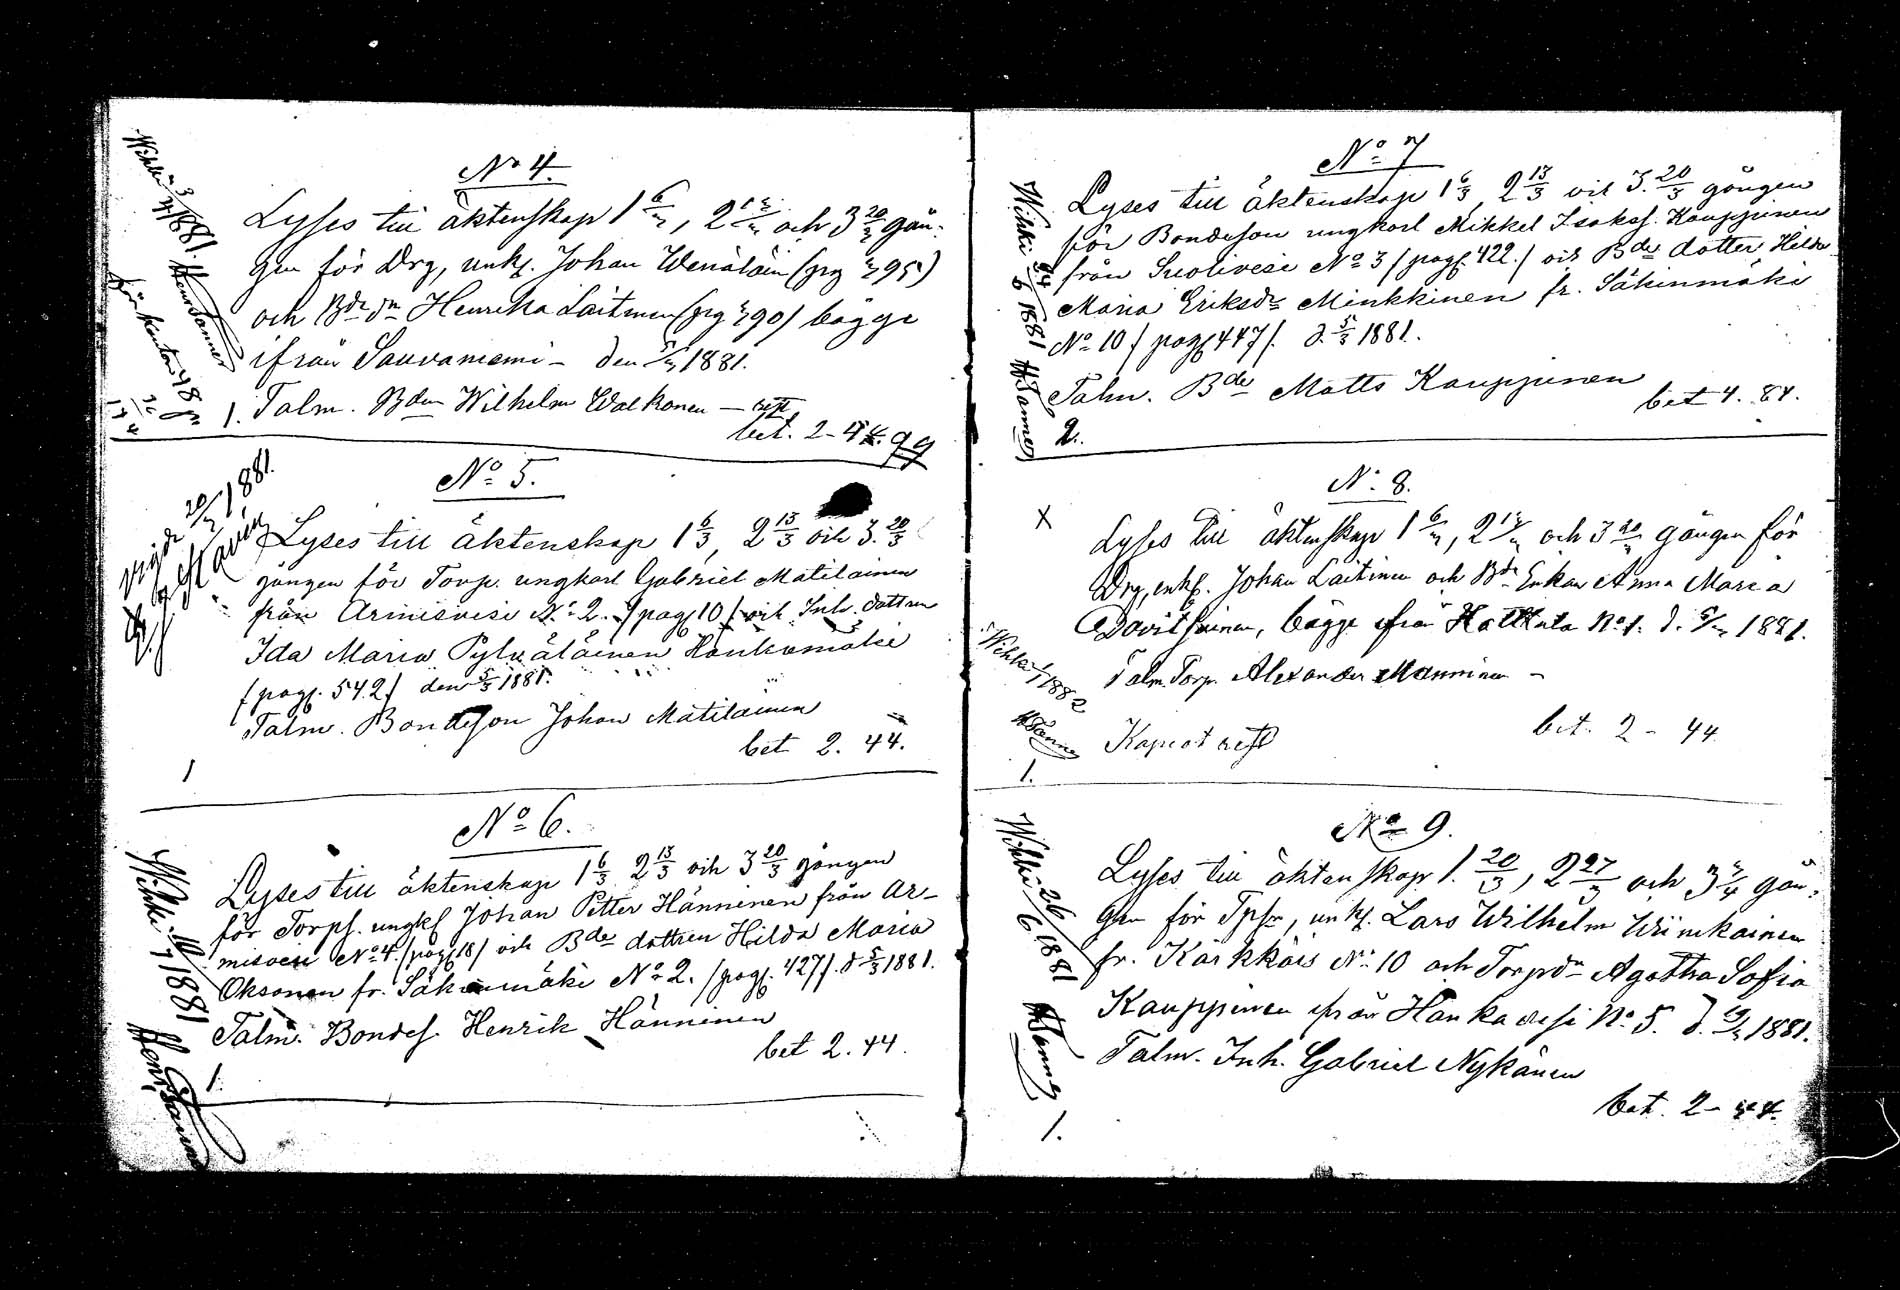 No 4.
Lyses till äktenskap 1 6/3, 2 13/3 och 3 20/3 gån-
gen för Drg, unk. Johan Wenäläin (pag 395)
och Bde dr Henrika Laitinen (pag 390) bägge
ifrån Sauvaniemi - den 5/3 1881.
Talm. Bden Wilhelm Walkonen - rest
bet. 2-44.
Wihki 3/7 1881. Henr Tanner
1.
No 5.
Lyses till äktenskap 1 6/3, 2 13/3 och 3. 20/3
gången för Torp. ungkarl Gabriel Matilainen
från Armisvesi No 2. /pag 10/ och Inh. dottren
Ida Maria Pylväläinen Hankamäki
/pag. 542/ den 5/3 1881.
Talm. Bondeson Johan Matilainen
bet 2. 44.
Vigde 20/3 1881.
1
No 6.
Lyses till äktenskap 1 6/3 2 13/3 och 3 20/3 gången
för Torps. ungk Johan Petter Hänninen från Ar-
misvesi No 4. /pag 18/ och Bde dottren Hilda Maria
Oksanen fr. Säkinmäki No 2. /pag. 427/. d 5/3 1881.
Talm. Bondes. Henrik Hänninen
bet 2. 44.
Wihki 10/7 1881 Henr Tanner
1.
No 7
Lyses till äktenskap 1 6/3, 2 13/3 och 3. 20/3 gången
för Bondeson ungkarl Mikkel Isakss. Kauppinen
från Suolivesi No 3 /pag. 422./ och Bde dotter Hilda
Maria Eriksdr Minkkinen fr. Säkinmäki
No 10 / pag 447/. d. 5/3 1881.
Talm. Bde Matts Kauppinen
bet 4. 84.
Wihki 24/6 1881 H Tanner
2.
No 8.
X
Lyses till äktenskap 1 6/3, 2 13/3 och 3 20/3 gången för
Drg, enk. Johan Laitinen och Bde Enkan Anna Maria
Davitsainen, bägge från Halttula No 1. d. 5/3 1881.
Talm. Torp. Alexander Manninen -
bet. 2 - 44.
Kapiot rest
Wihki 1/1 1882
H Tanner
1.
No 9.
Lyses till äktenskap 1. 20/3, 2 27/3 och 3 3/4 gån-
gen för Tpsn, unk. Lars Wilhelm Wiinikainen
fr. Kärkkäis No 10 och Torpdr Agatha Sofia
Kauppinen från Hankavesi No 5. d. 19/3 1881.
Talm. Inh. Gabriel Nykänen
bet. 2-44.
Wihki 26/6 1881 H Tanner
1.